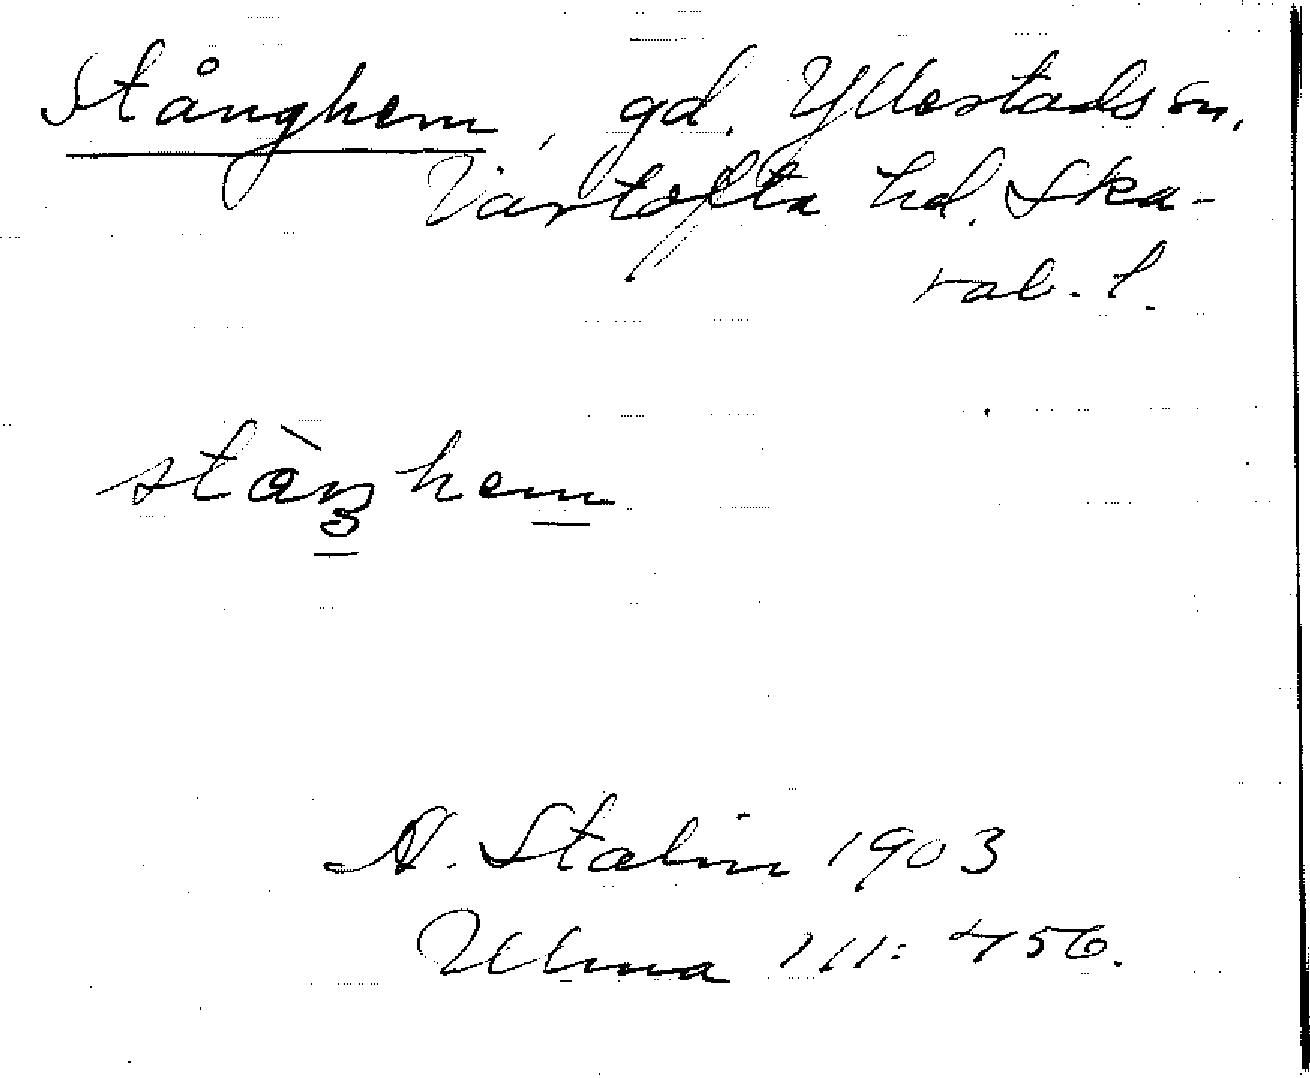 Stånghem, gd. Yllestads sn,
Vartofta hd. Ska-
rab. l.
stàŋhem
A. Stalin 1903
Ulma 111: 456.